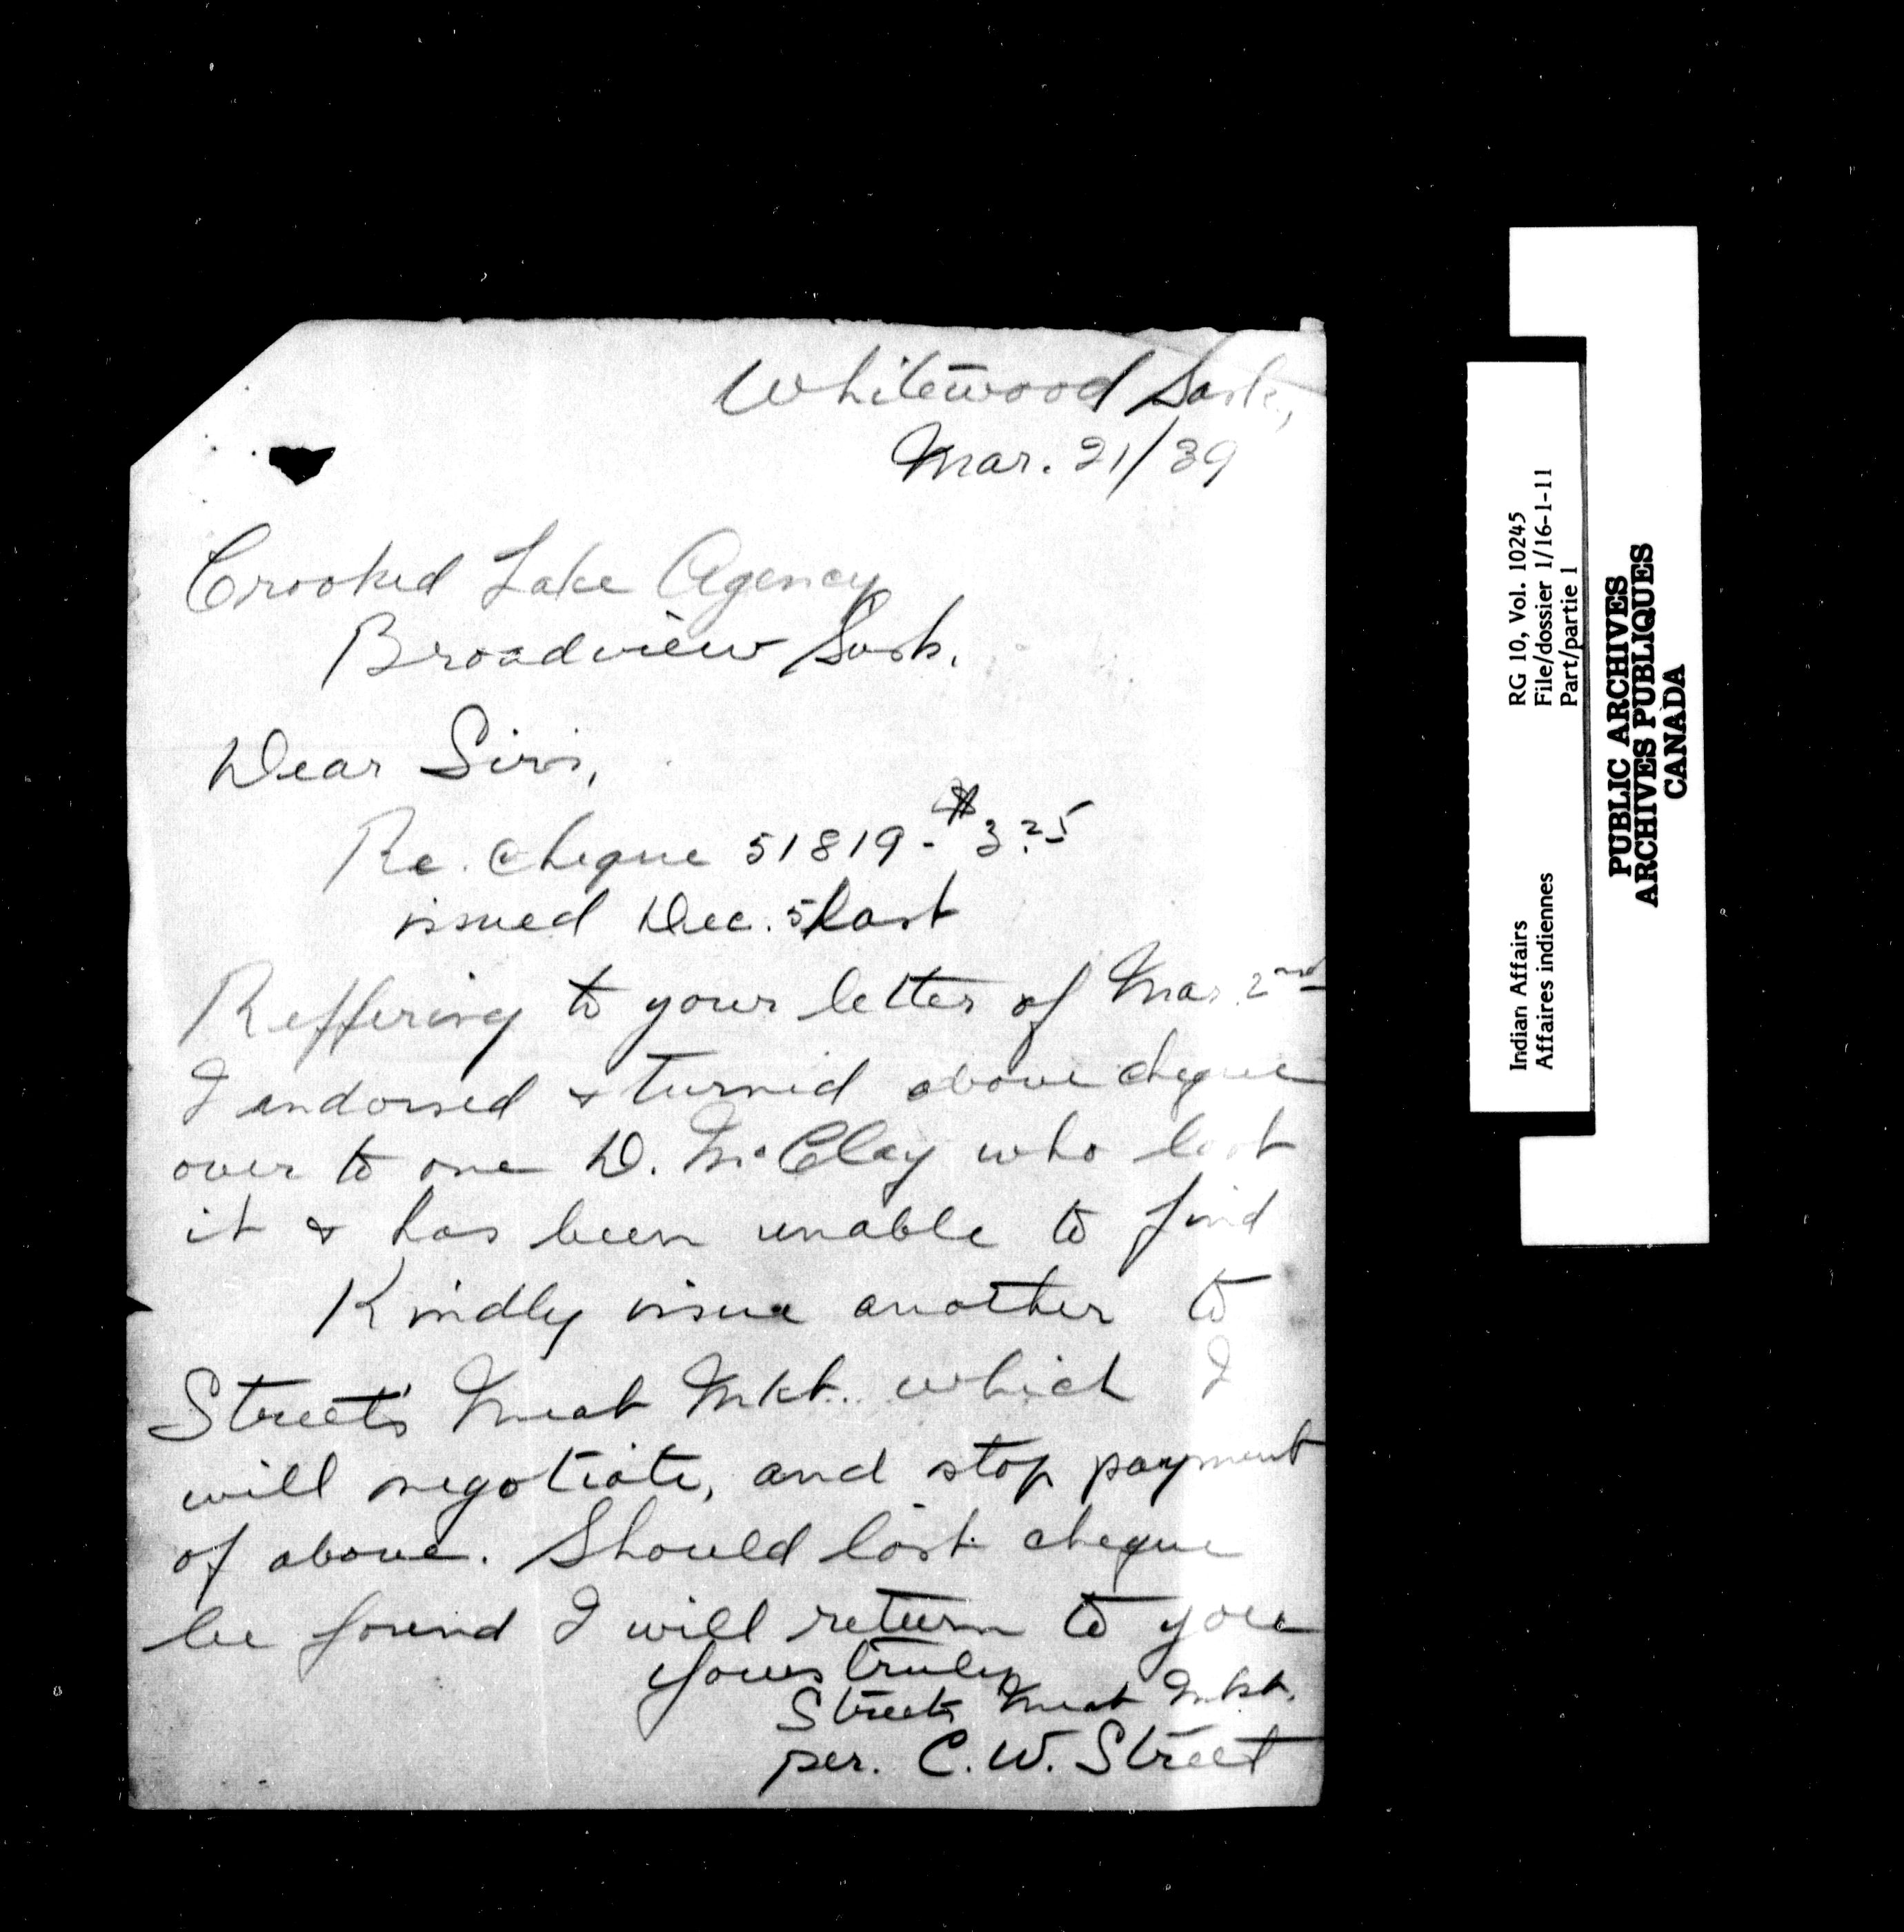 Whitewood Sask,
Mar. 21/39
Crooked Lake Agency
Broadview Sask.
Dear Sirs,
Re. cheque 51819 - $3.25
issued Dec. 5/last
Reffering to your letter of Mar. 2nd
I endorsed & turned above cheque
over to one D. McClay who lost
it & has been unable to find
Kindly issue another to
Street's Meat Mkt. which I
will negotiate, and stop payment
of above. Should lost cheque
be found I will return to you
Yours truly
Streets Meat Mkt.
per. C. W. Street
Indian Affairs RG 10, Vol. 10245
Affaires indiennes File/dossier 1/16-1-11
Part/partie 1
PUBLIC ARCHIVES
ARCHIVES PUBLIQUES
CANADA